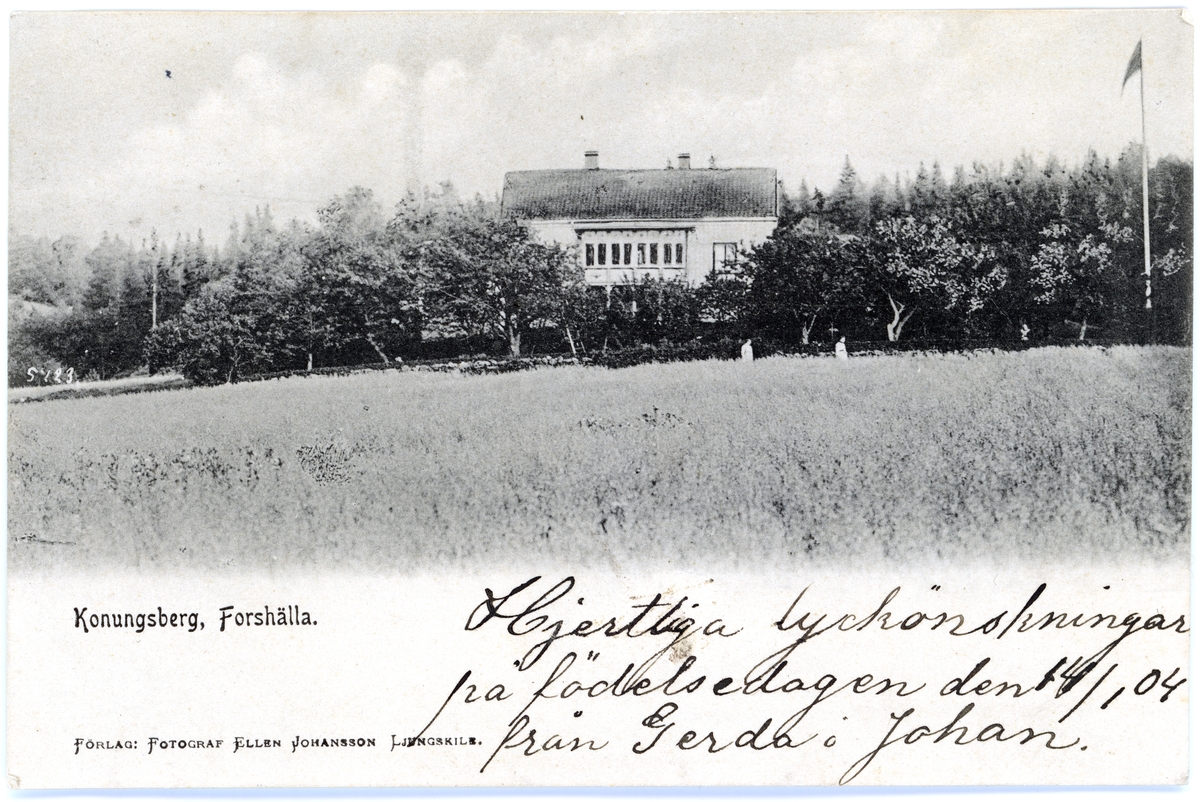 5723
Konungsberg, Forshälla.
Hjertliga lyckönskningar
på födelsedagen den 14/1, 04
från Gerda o Johan.
Förlag: Fotograf Ellen Johansson Ljungskile.